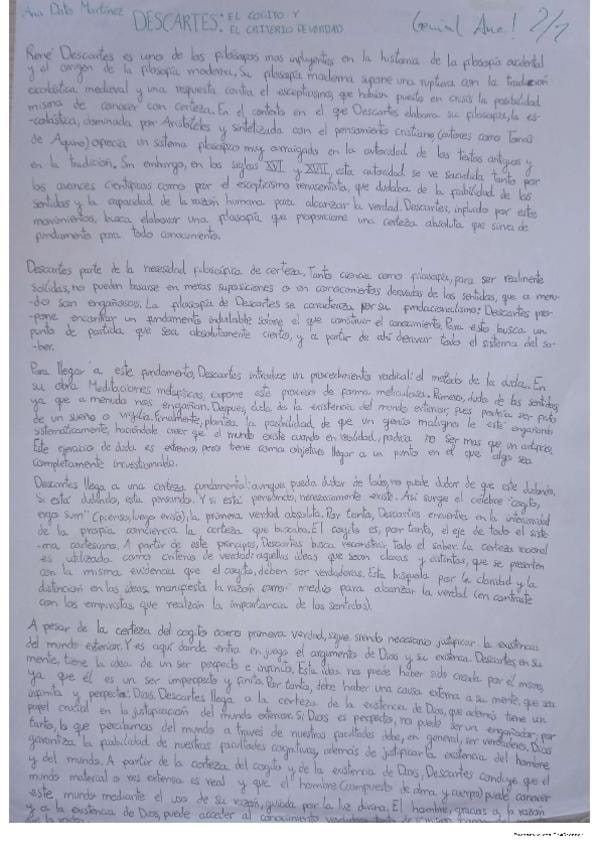 Ana Dato Martínez
DESCARTES: EL COGITO Y
EL CRITERIO DE VERDAD
Genial Ana! 2/1
René Descartes es uno de los filósofos mas influyentes en la historia de la filosofía occidental
y el origen de la filosofía moderna. Su filosofía moderna supone una ruptura con la tradición
escolástica medieval y una respuesta contra el escepticismo, que habían puesto en crisis la posibilidad
misma de conocer con certeza. En el contexto en el que Descartes elabora su filosofía, la es-
-colástica, dominada por Aristóteles y sintetizada con el pensamiento cristiano (autores como Tomás
de Aquino) ofrecía un sistema filosófico muy arraigado en la autoridad de los textos antiguos y
en la tradición. Sin embargo, en los siglos XVI y XVII, esta autoridad se ve sacudida tanto por
los avances científicos como por el escepticismo renacentista, que dudaba de la fiabilidad de los
sentidos y la capacidad de la razón humana para alcanzar la verdad. Descartes, influido por estos
movimientos, busca elaborar una filosofía que proporcione una certeza absoluta que sirva de
fundamento para todo conocimiento.
Descartes parte de la necesidad filosófica de certeza. Tanto ciencia como filosofía, para ser realmente
sólidas, no pueden basarse en meras suposiciones o en conocimientos derivados de los sentidos, que a menu-
-do son engañosos. La filosofía de Descartes se caracteriza por su fundacionalismo: Descartes pro-
-pone encontrar un fundamento indudable sobre el que construir el conocimiento. Para esto busca un
punto de partida que sea absolutamente cierto, y a partir de ahí derivar todo el sistema del sa-
-ber.
Para llegar a este fundamento, Descartes introduce un procedimiento radical: el método de la duda. En
su obra Meditaciones metafísicas, expone este proceso de forma meticulosa. Primero, duda de los sentidos
ya que a menudo nos engañan. Después, duda de la existencia del mundo exterior, pues podría ser fruto
de un sueño o vigilia. Finalmente, plantea la posibilidad de que un genio maligno le esté engañando
sistemáticamente, haciéndole creer que el mundo existe cuando en realidad, podría no ser mas que un artificio.
Este ejercicio de duda es extremo, pero tiene como objetivo llegar a un punto en el que algo sea
completamente incuestionable.
Descartes llega a una certeza fundamental: aunque pueda dudar de todo, no puede dudar de que este dudando.
Si está dudando, esta pensando. Y si está pensando, necesariamente existe. Así surge el célebre "cogito,
ergo sum" (pienso, luego existo), la primera verdad absoluta. Por tanto, Descartes encuentra en la interioridad
de la propia conciencia la certeza que buscaba. El cogito es, por tanto, el eje de todo el siste-
-ma cartesiano. A partir de este principio, Descartes busca reconstruir todo el saber. La certeza racional
es utilizada como criterio de verdad: aquellas ideas que sean claras y distintas, que se presenten
con la misma evidencia que el cogito, deben ser verdaderas. Esta búsqueda por la claridad y la
distinción en las ideas, manifiesta la razón como medio para alcanzar la verdad (en contraste
con los empiristas que realzan la importancia de los sentidos).
A pesar de la certeza del cogito como primera verdad, sigue siendo necesario justificar la existencia
del mundo exterior. Y es aquí donde entra en juego el argumento de Dios y su existencia. Descartes, en su
mente, tiene la idea de un ser perfecto e infinito. Esta idea no puede haber sido creada por él mismo,
ya que él es un ser imperfecto y finito. Por tanto, debe haber una causa externa a su mente, que sea
infinita y perfecta: Dios. Descartes llega a la certeza de la existencia de Dios, que además tiene un
papel crucial en la justificación del mundo exterior. Si Dios es perfecto, no puede ser un engañador, por
tanto, lo que percibimos del mundo a través de nuestras facultades debe, en general, ser verdadero. Dios
garantiza la fiabilidad de nuestras facultades cognitivas, además de justificar la existencia del hombre
y del mundo. A partir de la certeza del cogito y de la existencia de Dios, Descartes concluye que el
mundo material o res extensa es real y que el hombre (compuesto de alma y cuerpo) puede conocer
este mundo mediante el uso de su razón, guiada por la luz divina. El hombre, gracias a la razón
y a la existencia de Dios, puede acceder al conocimiento verdadero